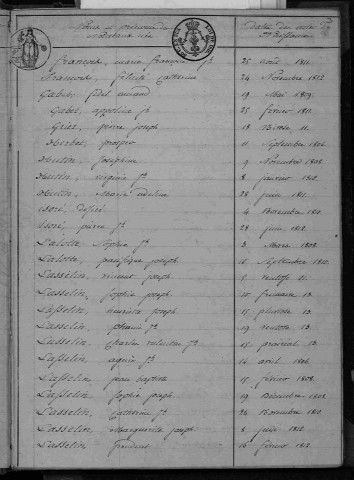 Noms et prénoms des
Dates des actes de
francois, marie françoise jh 25 août 1811
francois, felicité catherine 24 Novembre 1812
Gabet, fidel amand 19 Mai 1809
Gabet, appoline jh 25 fevrier 1811
Griez, pierre joseph 13 Nivose 11
Herbet, prosper 11 Septembre 1806
hutin, josephine 9 Novembre 1808
hutin, virginie jh 8 janvier 1810
hutin, Marie adeline 28 juin 1811
isoré, desiré 4 Decembre 1810
isoré, pierre jh 28 juin 1812
Lalotte, Sophie jh 3 Mars 1808
Lalotte, pacifique joseph 10 Septembre 1812
Lasselin, vincent joseph 5 ventose 11
Lasselin, Sophie joseph 10 frimaire 13
Lasselin, henriette joseph 15 pluviose 13
Lasselin, jh 19 ventose 13
Lasselin, Charles valentin jh 15 prairial 13
Lasselin, agnès jh 14 avril 1806
Lasselin, jean baptiste 15 fevrier 1808
Lasselin, Sophie joseph 19 Décembre 1808
Lasselin, Catherine jh 24 Novembre 1810
Lasselin, Marguerite joseph 8 juin 1812
Lasselin 16 fevrier 1812